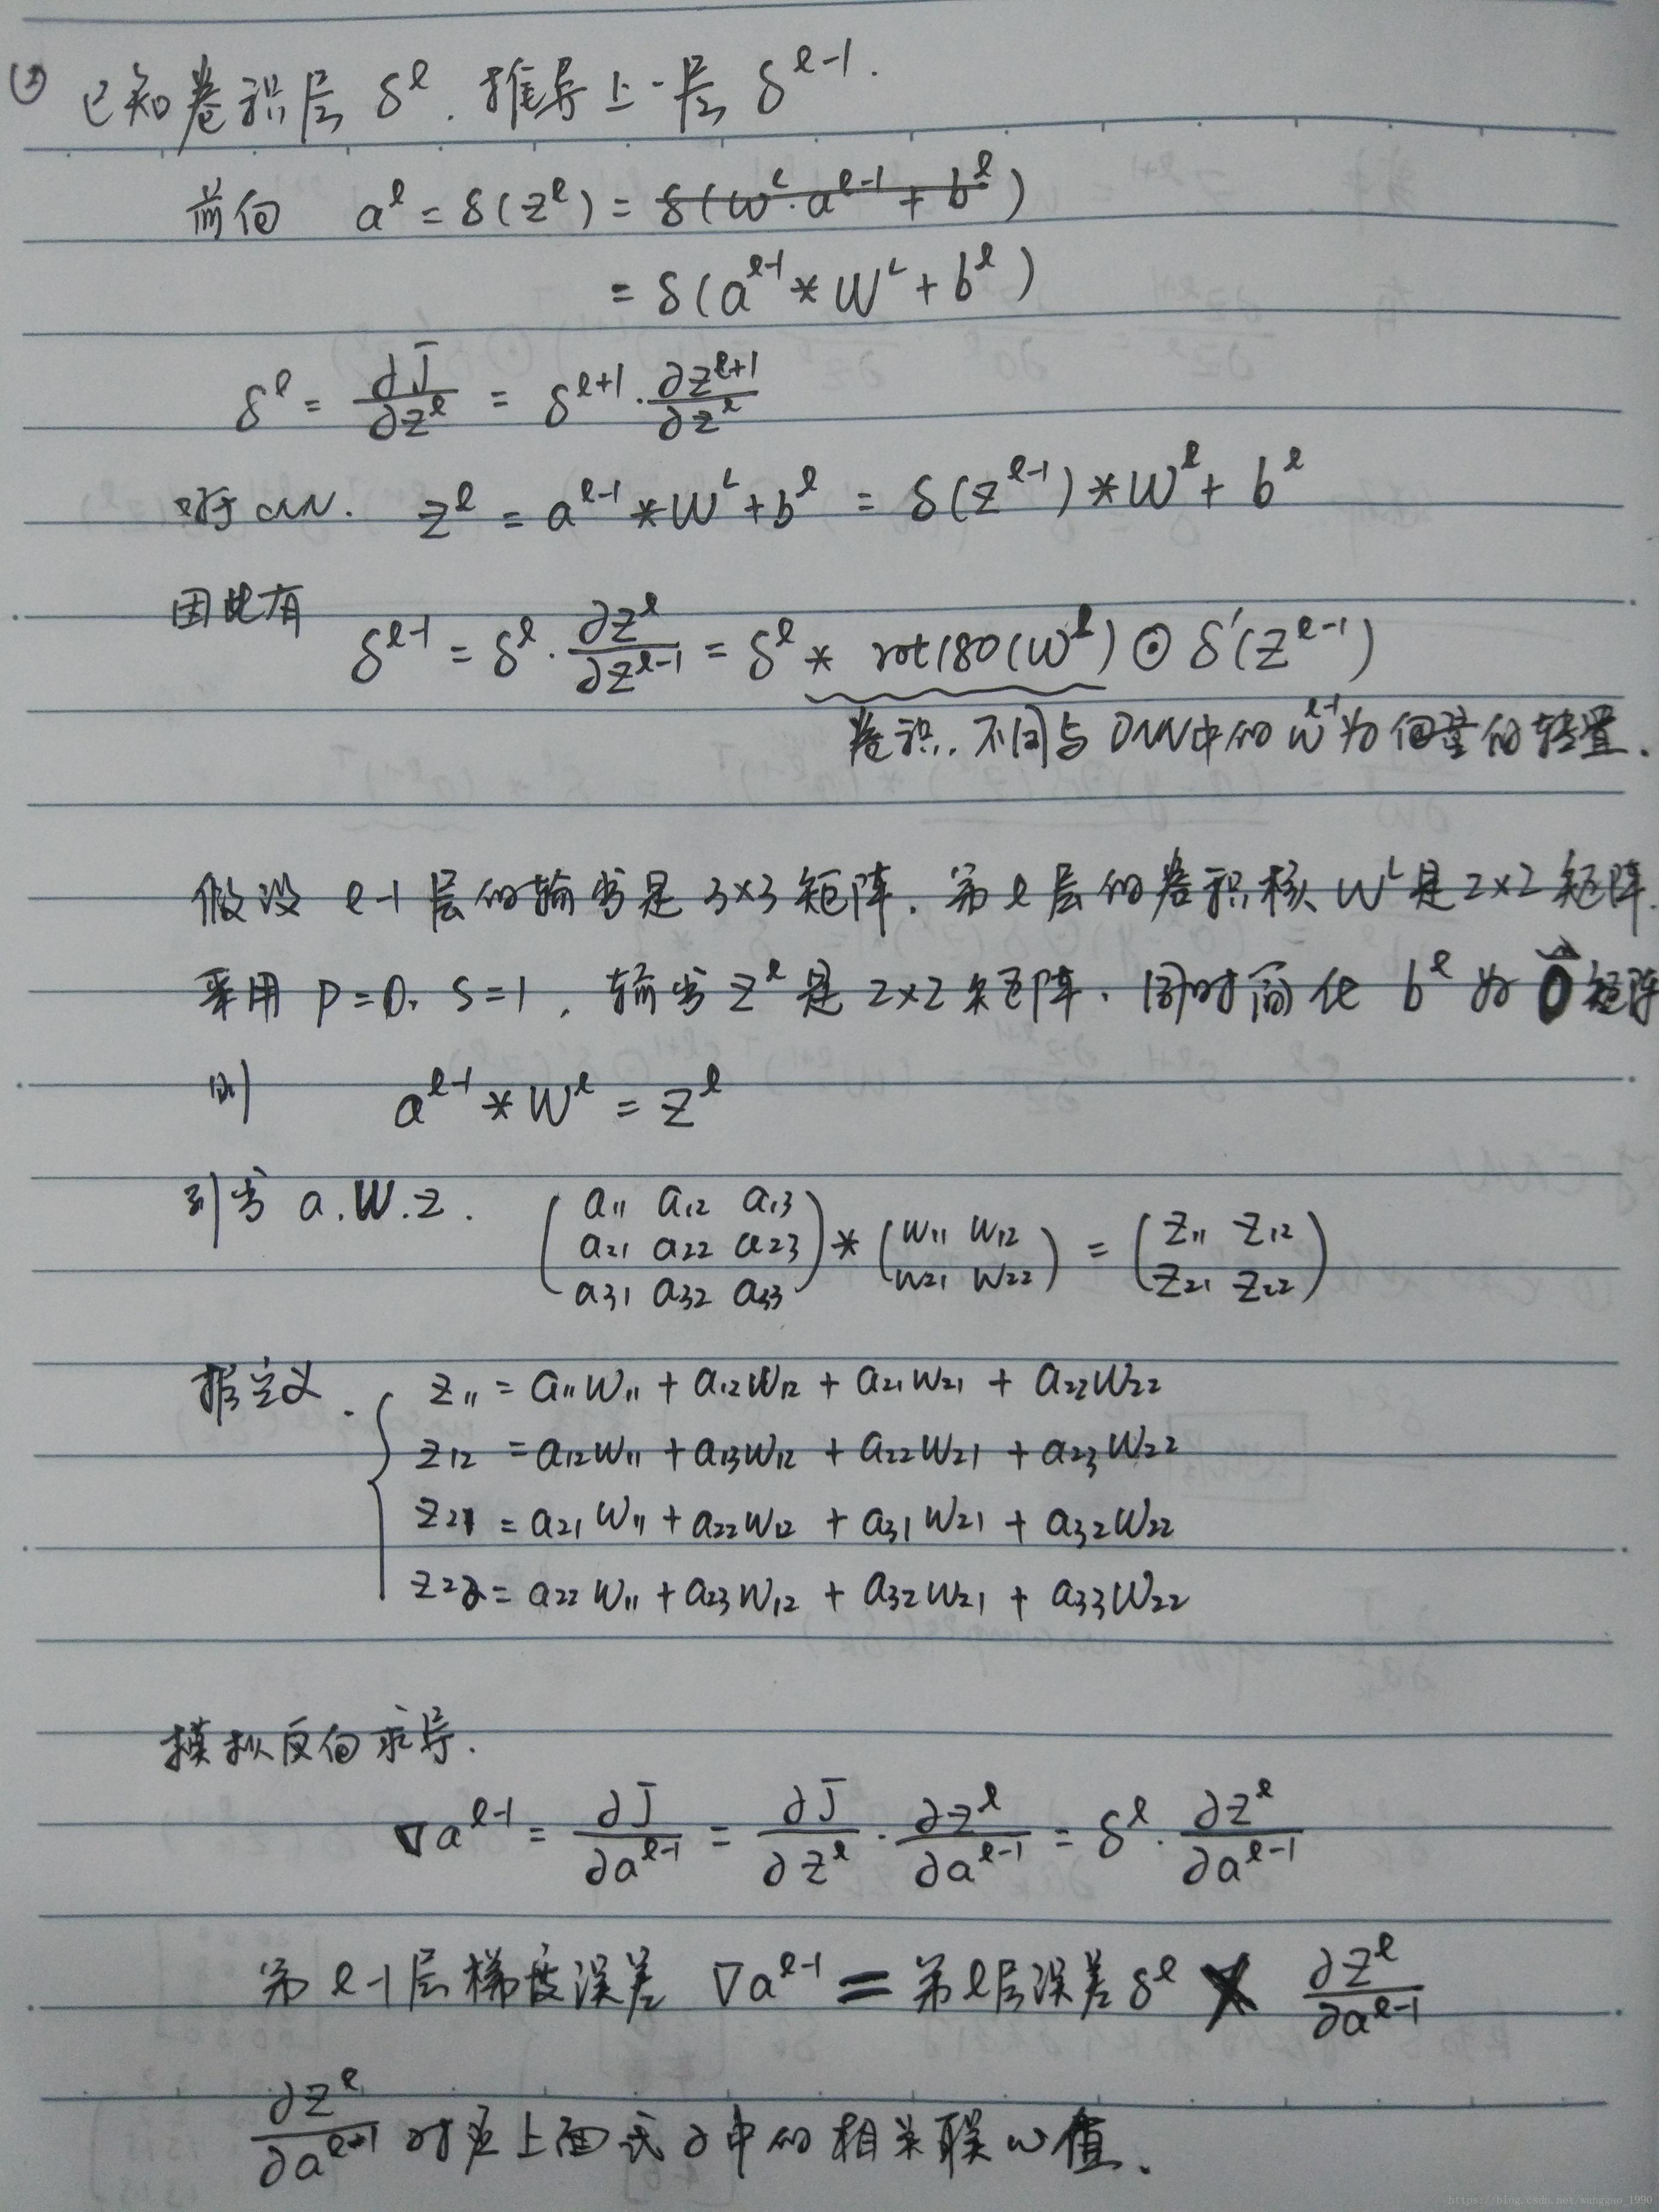 ② 已知卷积层 δ^l. 推导上一层 δ^{l-1}.
前向 a^l = δ(z^l) = δ(w^l · a^{l-1} + b^l)
= δ(a^{l-1} * W^l + b^l)
δ^l = ∂J/∂z^l = δ^{l+1} · ∂z^{l+1}/∂z^l
对于CNN. z^l = a^{l-1} * W^l + b^l = δ(z^{l-1}) * W^l + b^l
因此有 δ^{l-1} = δ^l · ∂z^l/∂z^{l-1} = δ^l * rot180(W^l) ⊙ δ'(z^{l-1})
卷积, 不同与DNN中的 w^{l-1} 为向量的转置.
假设 l-1 层的输出是 3×3 矩阵. 第 l 层的卷积核 W^l 是 2×2 矩阵.
采用 P=0. S=1, 输出 z^l 是 2×2 矩阵. 同时简化 b^l 为 0 矩阵
则 a^{l-1} * W^l = z^l
列出 a. W. z. (a11 a12 a13 a21 a22 a23 a31 a32 a33) * (w11 w12 w21 w22) = (z11 z12 z21 z22)
据定义. z11 = a11w11 + a12w12 + a21w21 + a22w22
z12 = a12w11 + a13w12 + a22w21 + a23w22
z21 = a21w11 + a22w12 + a31w21 + a32w22
z22 = a22w11 + a23w12 + a32w21 + a33w22
模拟反向求导.
∇a^{l-1} = ∂J/∂a^{l-1} = ∂J/∂z^l · ∂z^l/∂a^{l-1} = δ^l · ∂z^l/∂a^{l-1}
第 l-1 层梯度误差 ∇a^{l-1} = 第l层误差 δ^l × ∂z^l/∂a^{l-1}
∂z^l/∂a^{l-1} 对应上面式子中的相关联 w 值.
https://blog.csdn.net/wangguo_1990